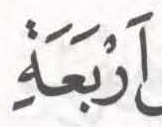 اَرْبَعَةِ